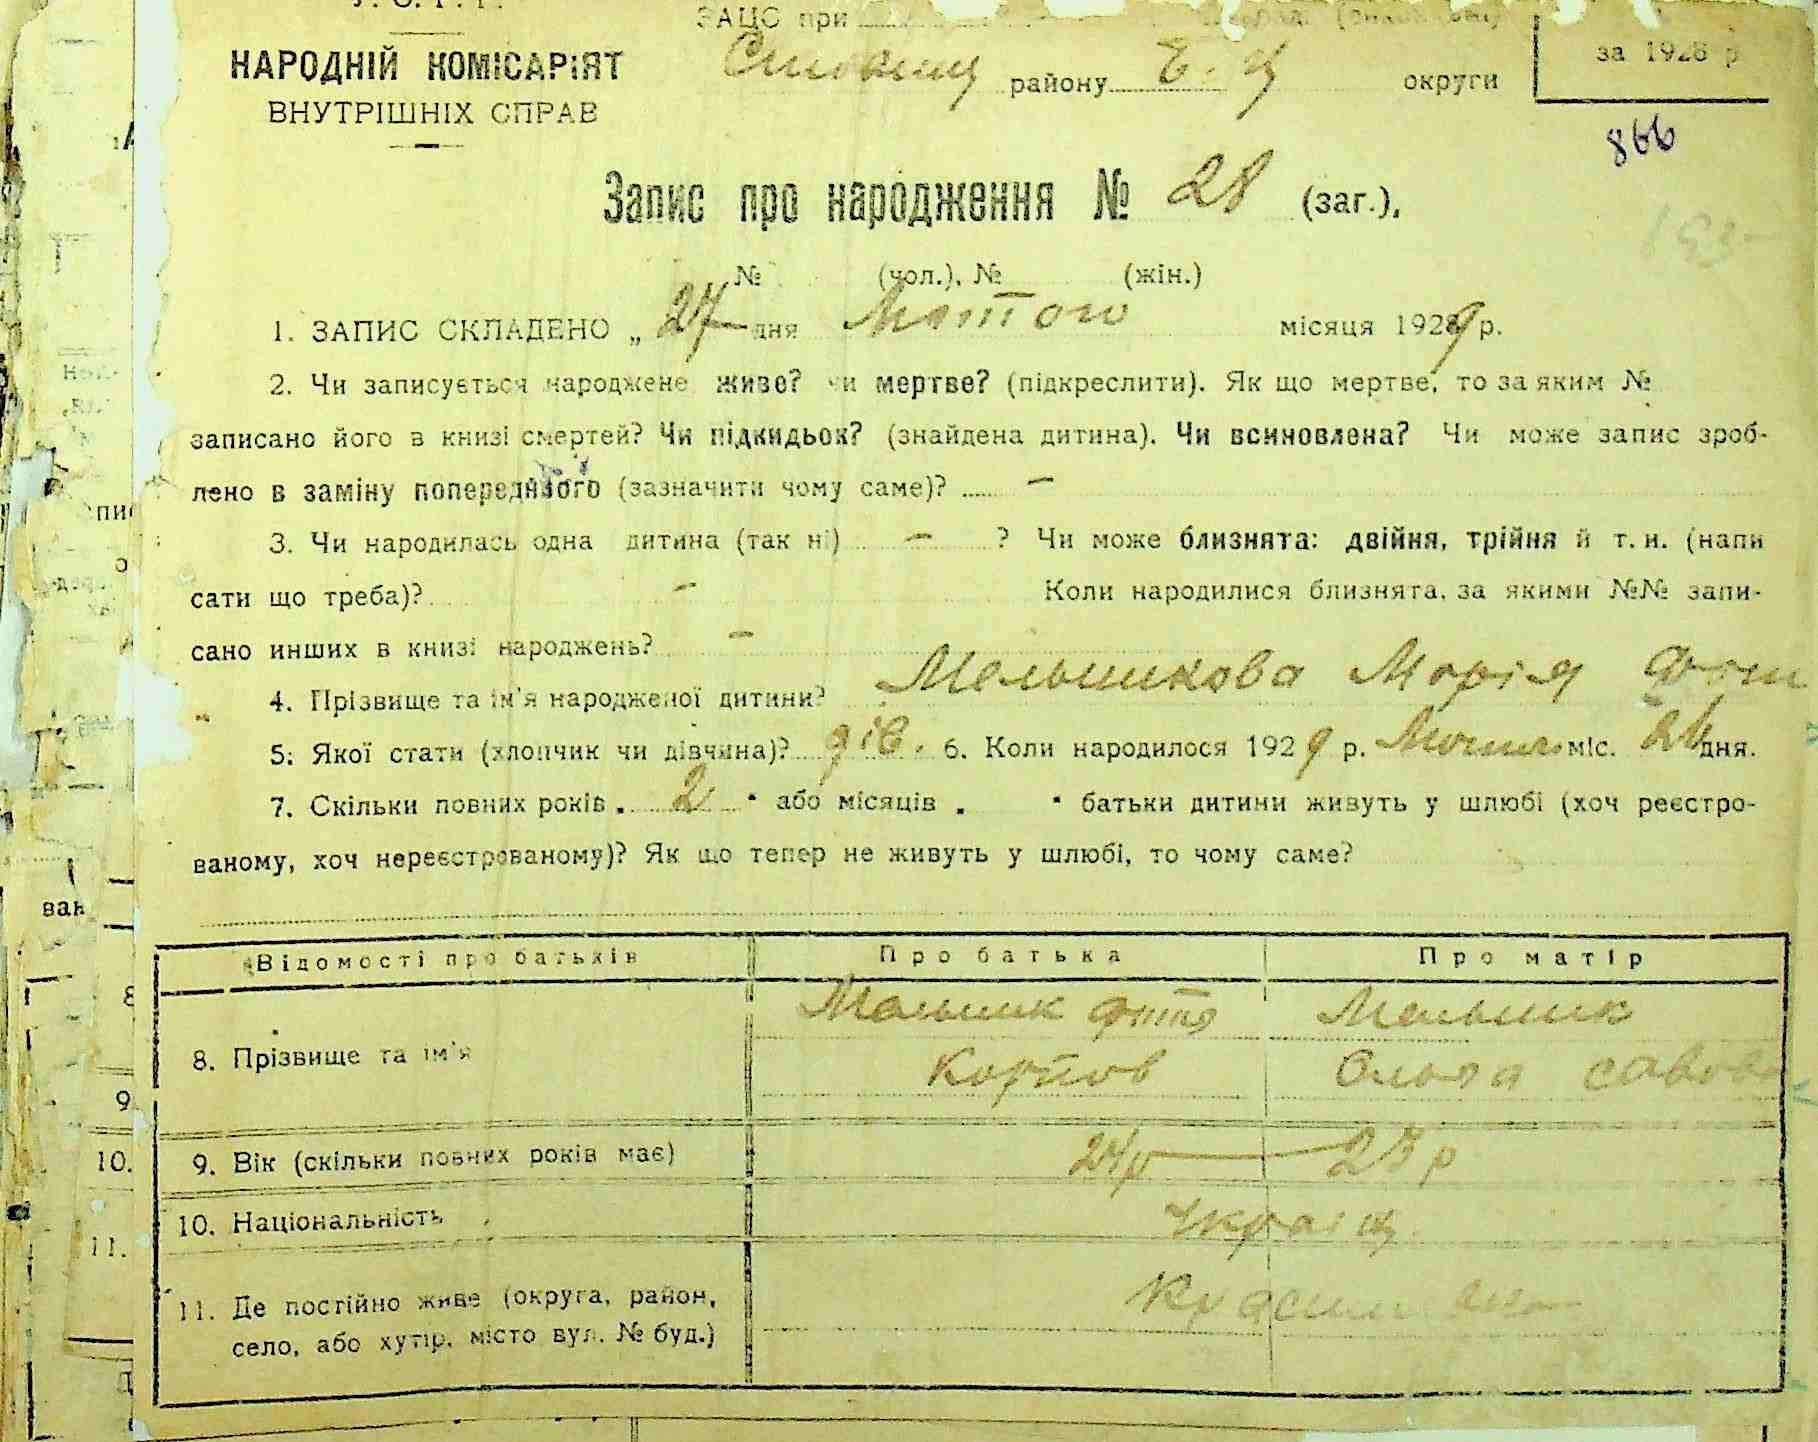 У. С. Р. Р.
ЗАЦС при
НАРОДНІЙ КОМІСАРІЯТ
району округи
за 1928 р
ВНУТРІШНІХ СПРАВ
866
Запис про народження № 28 (заг.),
№ (чол.), № (жін.)
1. ЗАПИС СКЛАДЕНО „ 27 дня Лютого місяця 1929 р.
2. Чи записується народжене живе? чи мертве? (підкреслити). Як що мертве, то за яким №
записано його в книзі смертей? Чи підкидьок? (знайдена дитина). Чи всиновлена? Чи може запис зроб-
лено в заміну попереднього (зазначити чому саме)? —
3. Чи народилась одна дитина (так ні) — ? Чи може близнята: двійня, трійня й т. и. (напи
сати що треба)? — Коли народилися близнята, за якими №№ запи-
сано инших в книзі народжень? —
4. Прізвище та ім'я народженої дитини? Мельникова Марія
5. Якої стати (хлопчик чи дівчина)? дів. 6. Коли народилося 1929 р. міс. дня.
7. Скільки повних років „ 2 " або місяців „ " батьки дитини живуть у шлюбі (хоч реєстро-
ваному, хоч нереєстрованому)? Як що тепер не живуть у шлюбі, то чому саме?
Відомості про батьків Про батька Про матір
8. Прізвище та ім'я Мельник Мельник
Ольга Савова
9. Вік (скільки повних років має) 24 р — 23 р
10. Національність Україн
11. Де постійно живе (округа, район,
село, або хутір, місто вул. № буд.)